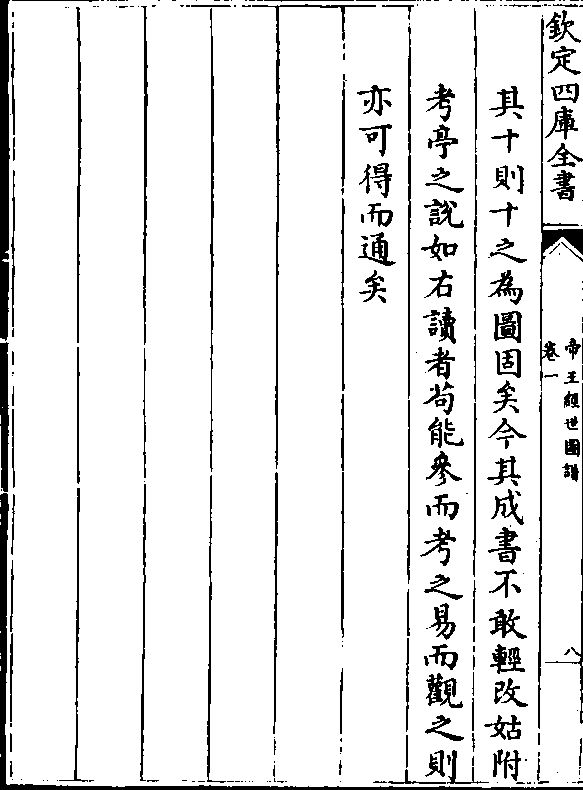 欽定四庫全書
帝王經世圖譜
卷一
八
其十則十之為圖固矣今其成書不敢輕改姑附
考亭之說如右讀者茍能參而考之易而觀之則
亦可得而通矣